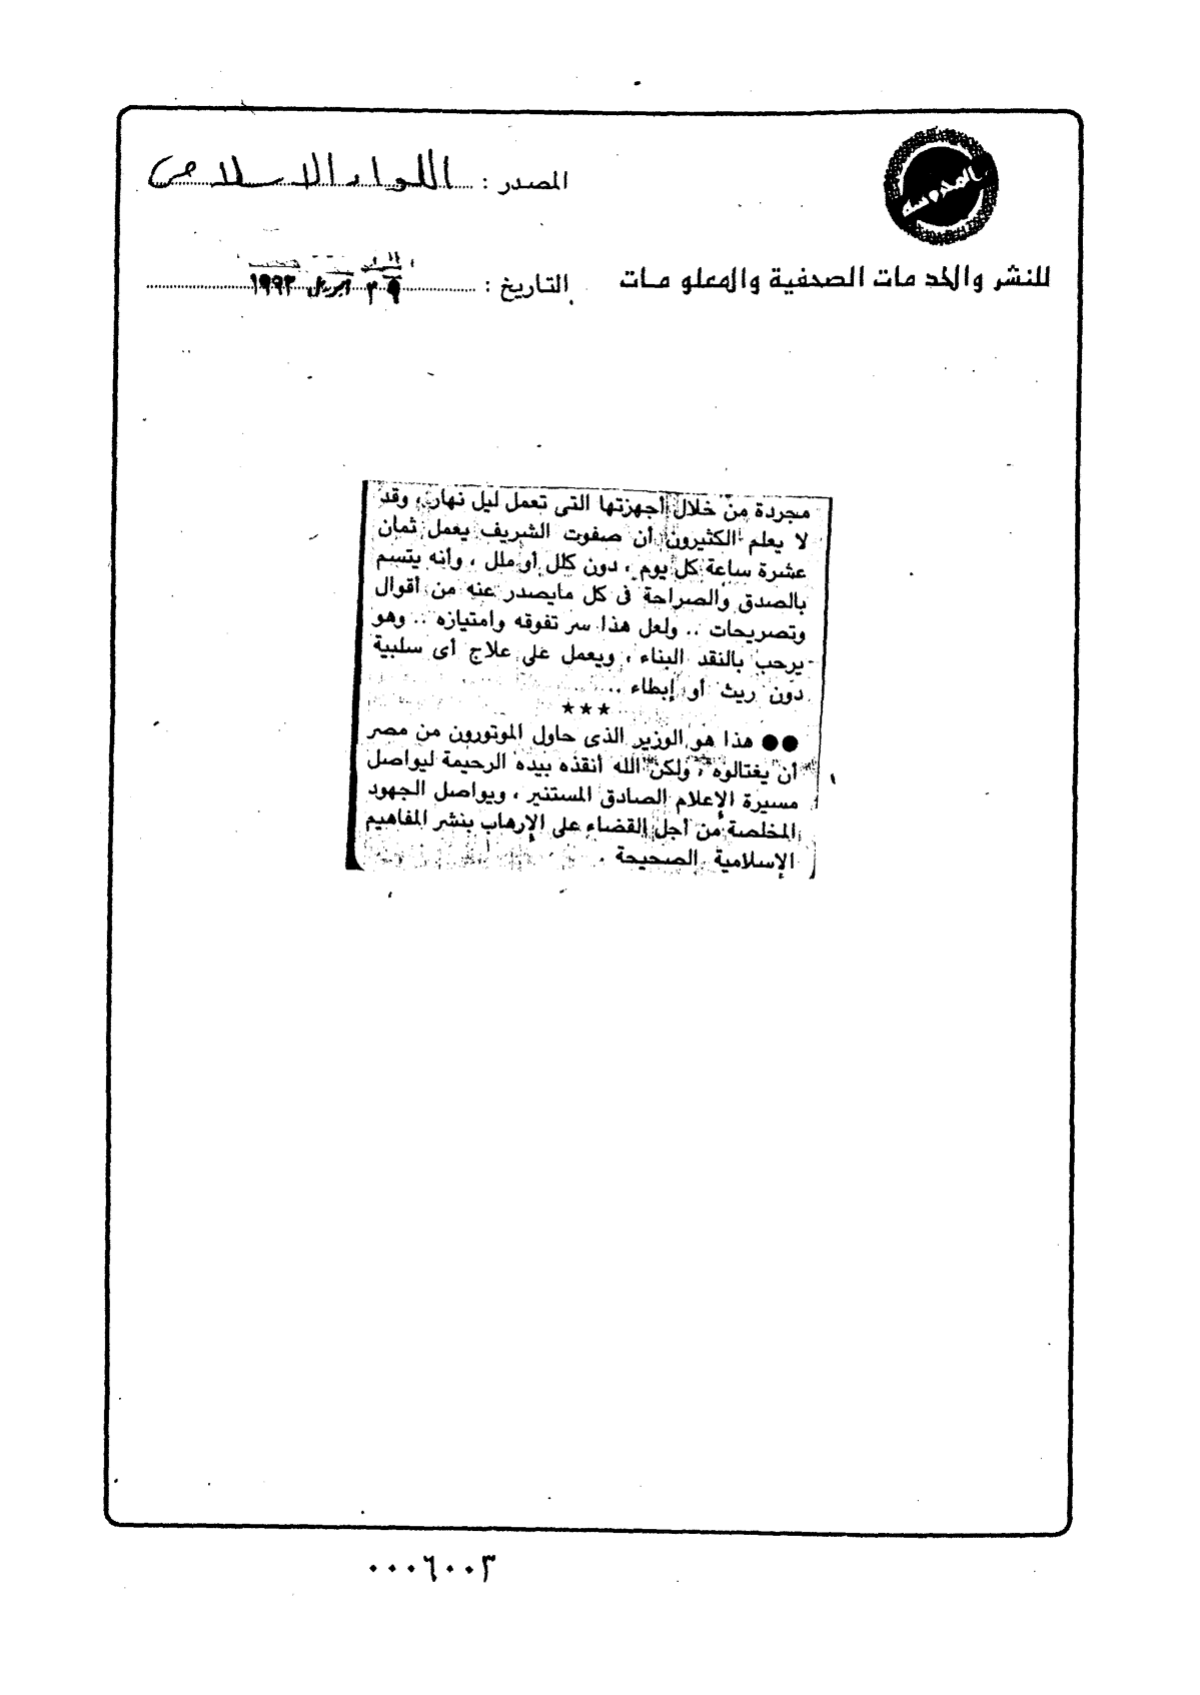 المحروسة
المصدر : اللواء الاسلامى
للنشر والخدمات الصحفية والمعلومات
التاريخ : ٢٩ ابريل ١٩٩٣
مجردة من خلال أجهزتها التى تعمل ليل نهار ، وقد
لا يعلم الكثيرون أن صفوت الشريف يعمل ثمان
عشرة ساعة كل يوم ، دون كلل أو ملل ، وأنه يتسم
بالصدق والصراحة فى كل مايصدر عنه من أقوال
وتصريحات .. ولعل هذا سر تفوقه وامتيازه .. وهو
يرحب بالنقد البناء ، ويعمل على علاج أى سلبية
دون ريث أو إبطاء ..
★★★
●● هذا هو الوزير الذى حاول الموتورون من مصر
أن يغتالوه ، ولكن الله أنقذه بيده الرحيمة ليواصل
مسيرة الإعلام الصادق المستنير ، ويواصل الجهود
المخلصة من أجل القضاء على الإرهاب بنشر المفاهيم
الإسلامية الصحيحة .
٠٠٠٦٠٠٣